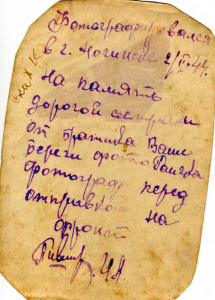 Фотографировался
в г. Ногинске 2/II.42г.
На память
дорогой сестрёнки
от братика Вани
Береги фото Раичка
фотограф перед
отправкой на
фронт